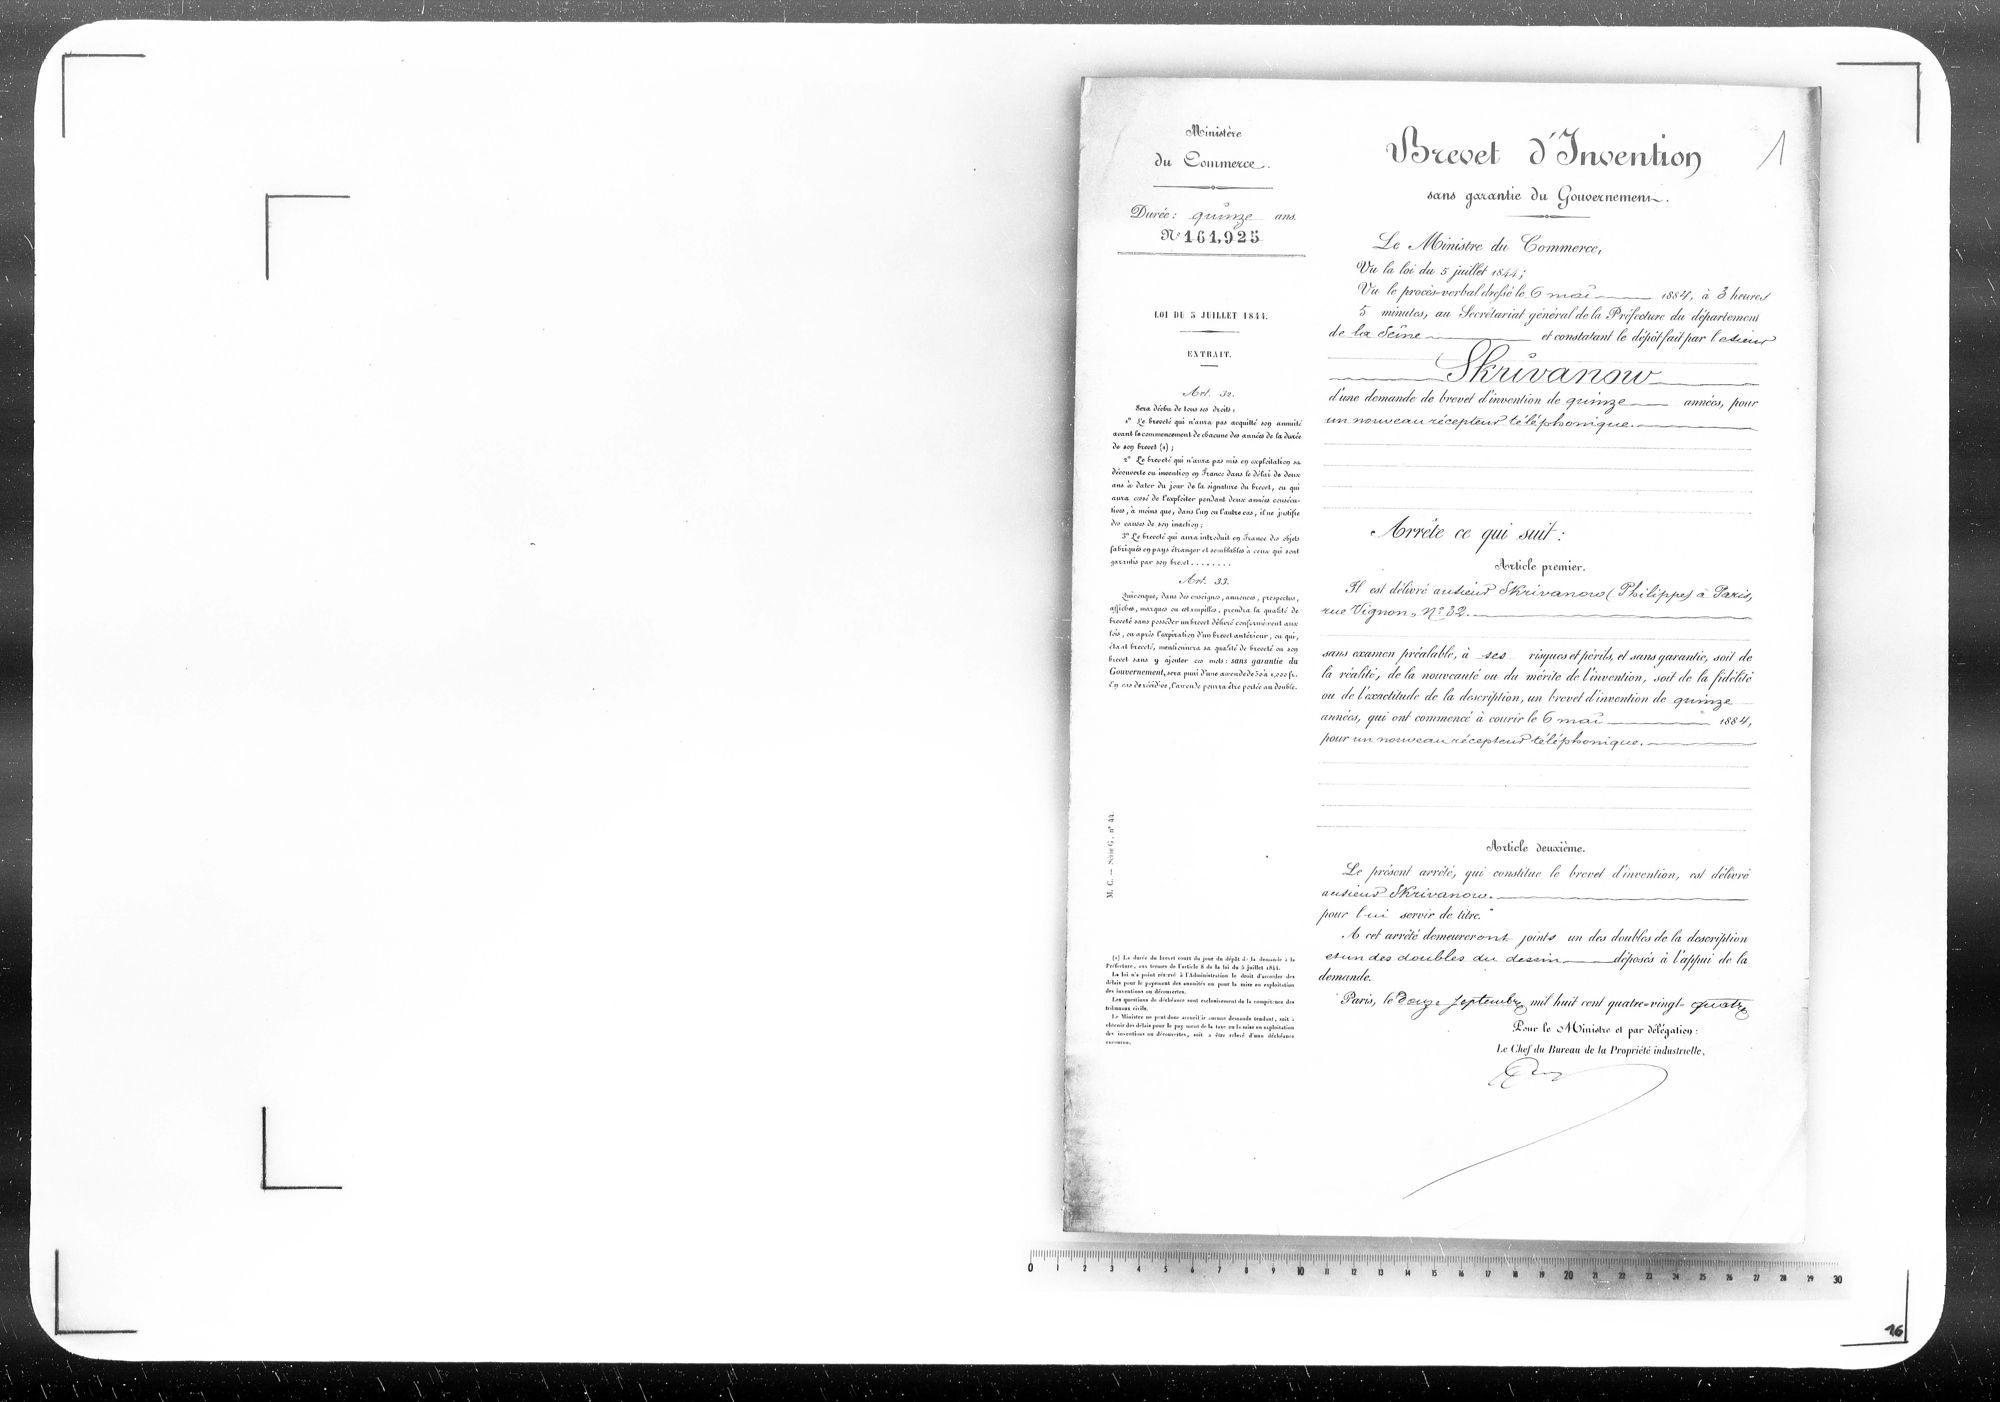 Ministère
du Commerce.
Durée : quinze ans.
N° 161,925
LOI DU 5 JUILLET 1844.
EXTRAIT.
Art. 32.
Sera déchu de tous ses droits :
1° Le breveté qui n'aura pas acquitté son annuité
avant le commencement de chacune des années de la durée
de son brevet (1) ;
2° Le breveté qui n'aura pas mis en exploitation sa
découverte ou invention en France dans le délai de deux
ans à dater du jour de la signature du brevet, ou qui
aura cessé de l'exploiter pendant deux années consécu-
tives, à moins que, dans l'un ou l'autre cas, il ne justifie
des causes de son inaction ;
3° Le breveté qui aura introduit en France des objets
fabriqués en pays étranger et semblables à ceux qui sont
garantis par son brevet........
Art. 33.
Quiconque, dans des enseignes, annonces, prospectus,
affiches, marques ou estampilles, prendra la qualité de
breveté sans posséder un brevet délivré conformément aux
lois, ou après l'expiration d'un brevet antérieur, ou qui,
étant breveté, mentionnera sa qualité de breveté ou son
brevet sans y ajouter ces mots : sans garantie du
Gouvernement, sera puni d'une amende de 50 à 1,000 fr.
En cas de récidive, l'amende pourra être portée au double.
M. C. — Série G, n° 44.
(1) La durée du brevet court du jour du dépôt de la demande à la
Préfecture, aux termes de l'article 8 de la loi du 5 juillet 1844.
La loi n'a point réservé à l'Administration le droit d'accorder des
délais pour le payement des annuités ou pour la mise en exploitation
des inventions ou découvertes.
Les questions de déchéance sont exclusivement de la compétence des
tribunaux civils.
Le Ministre ne peut donc accueillir aucune demande tendant, soit à
obtenir des délais pour le payement de la taxe ou la mise en exploitation
des inventions ou découvertes, soit à être relevé d'une déchéance
encourue.
Brevet d'Invention
1
sans garantie du Gouvernement.
Le Ministre du Commerce,
Vu la loi du 5 juillet 1844 ;
Vu le procès-verbal dressé le 6 mai 1884, à 3 heures
5 minutes, au Secrétariat général de la Préfecture du département
de la Seine et constatant le dépôt fait par le sieur
Skrivanow
d'une demande de brevet d'invention de quinze années, pour
un nouveau récepteur téléphonique.
Arrête ce qui suit :
Article premier.
Il est délivré au sieur Skrivanow (Philippe) à Paris,
rue Vignon, N° 32.
sans examen préalable, à ses risques et périls, et sans garantie, soit de
la réalité, de la nouveauté ou du mérite de l'invention, soit de la fidélité
ou de l'exactitude de la description, un brevet d'invention de quinze
années, qui ont commencé à courir le 6 mai 1884,
pour un nouveau récepteur téléphonique.
Article deuxième.
Le présent arrêté, qui constitue le brevet d'invention, est délivré
au sieur Skrivanow.
pour lui servir de titre.
A cet arrêté demeureront joints un des doubles de la description
et un des doubles du dessin déposés à l'appui de la
demande.
Paris, le douze septembre mil huit cent quatre-vingt-quatre
Pour le Ministre et par délégation :
Le Chef du Bureau de la Propriété industrielle,
0 1 2 3 4 5 6 7 8 9 10 11 12 13 14 15 16 17 18 19 20 21 22 23 24 25 26 27 28 29 30
16